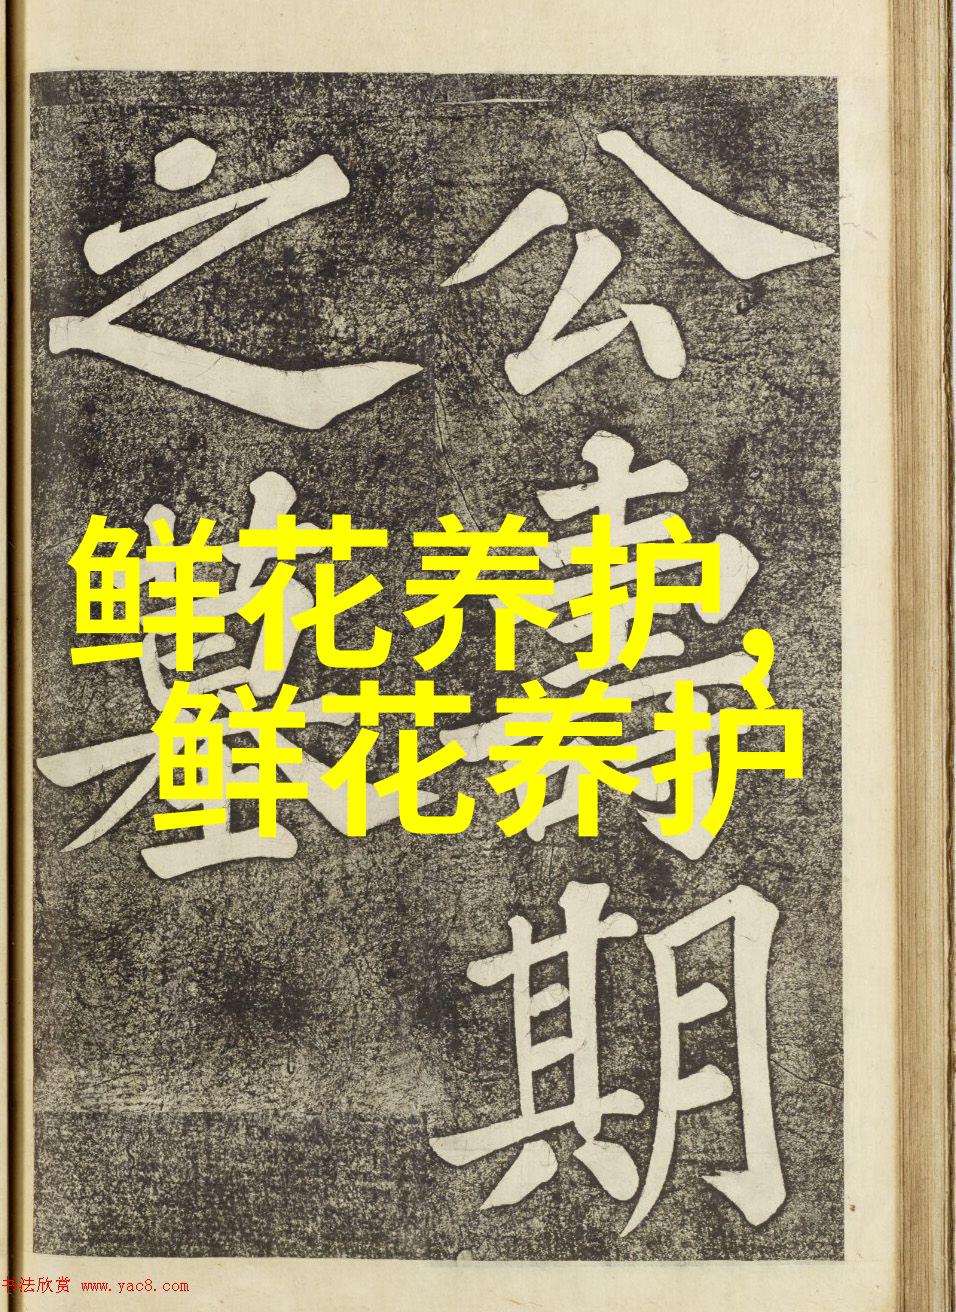 公壽期
之墓
鲜花养护，
鲜花养护
书法欣赏 www.yac8.com